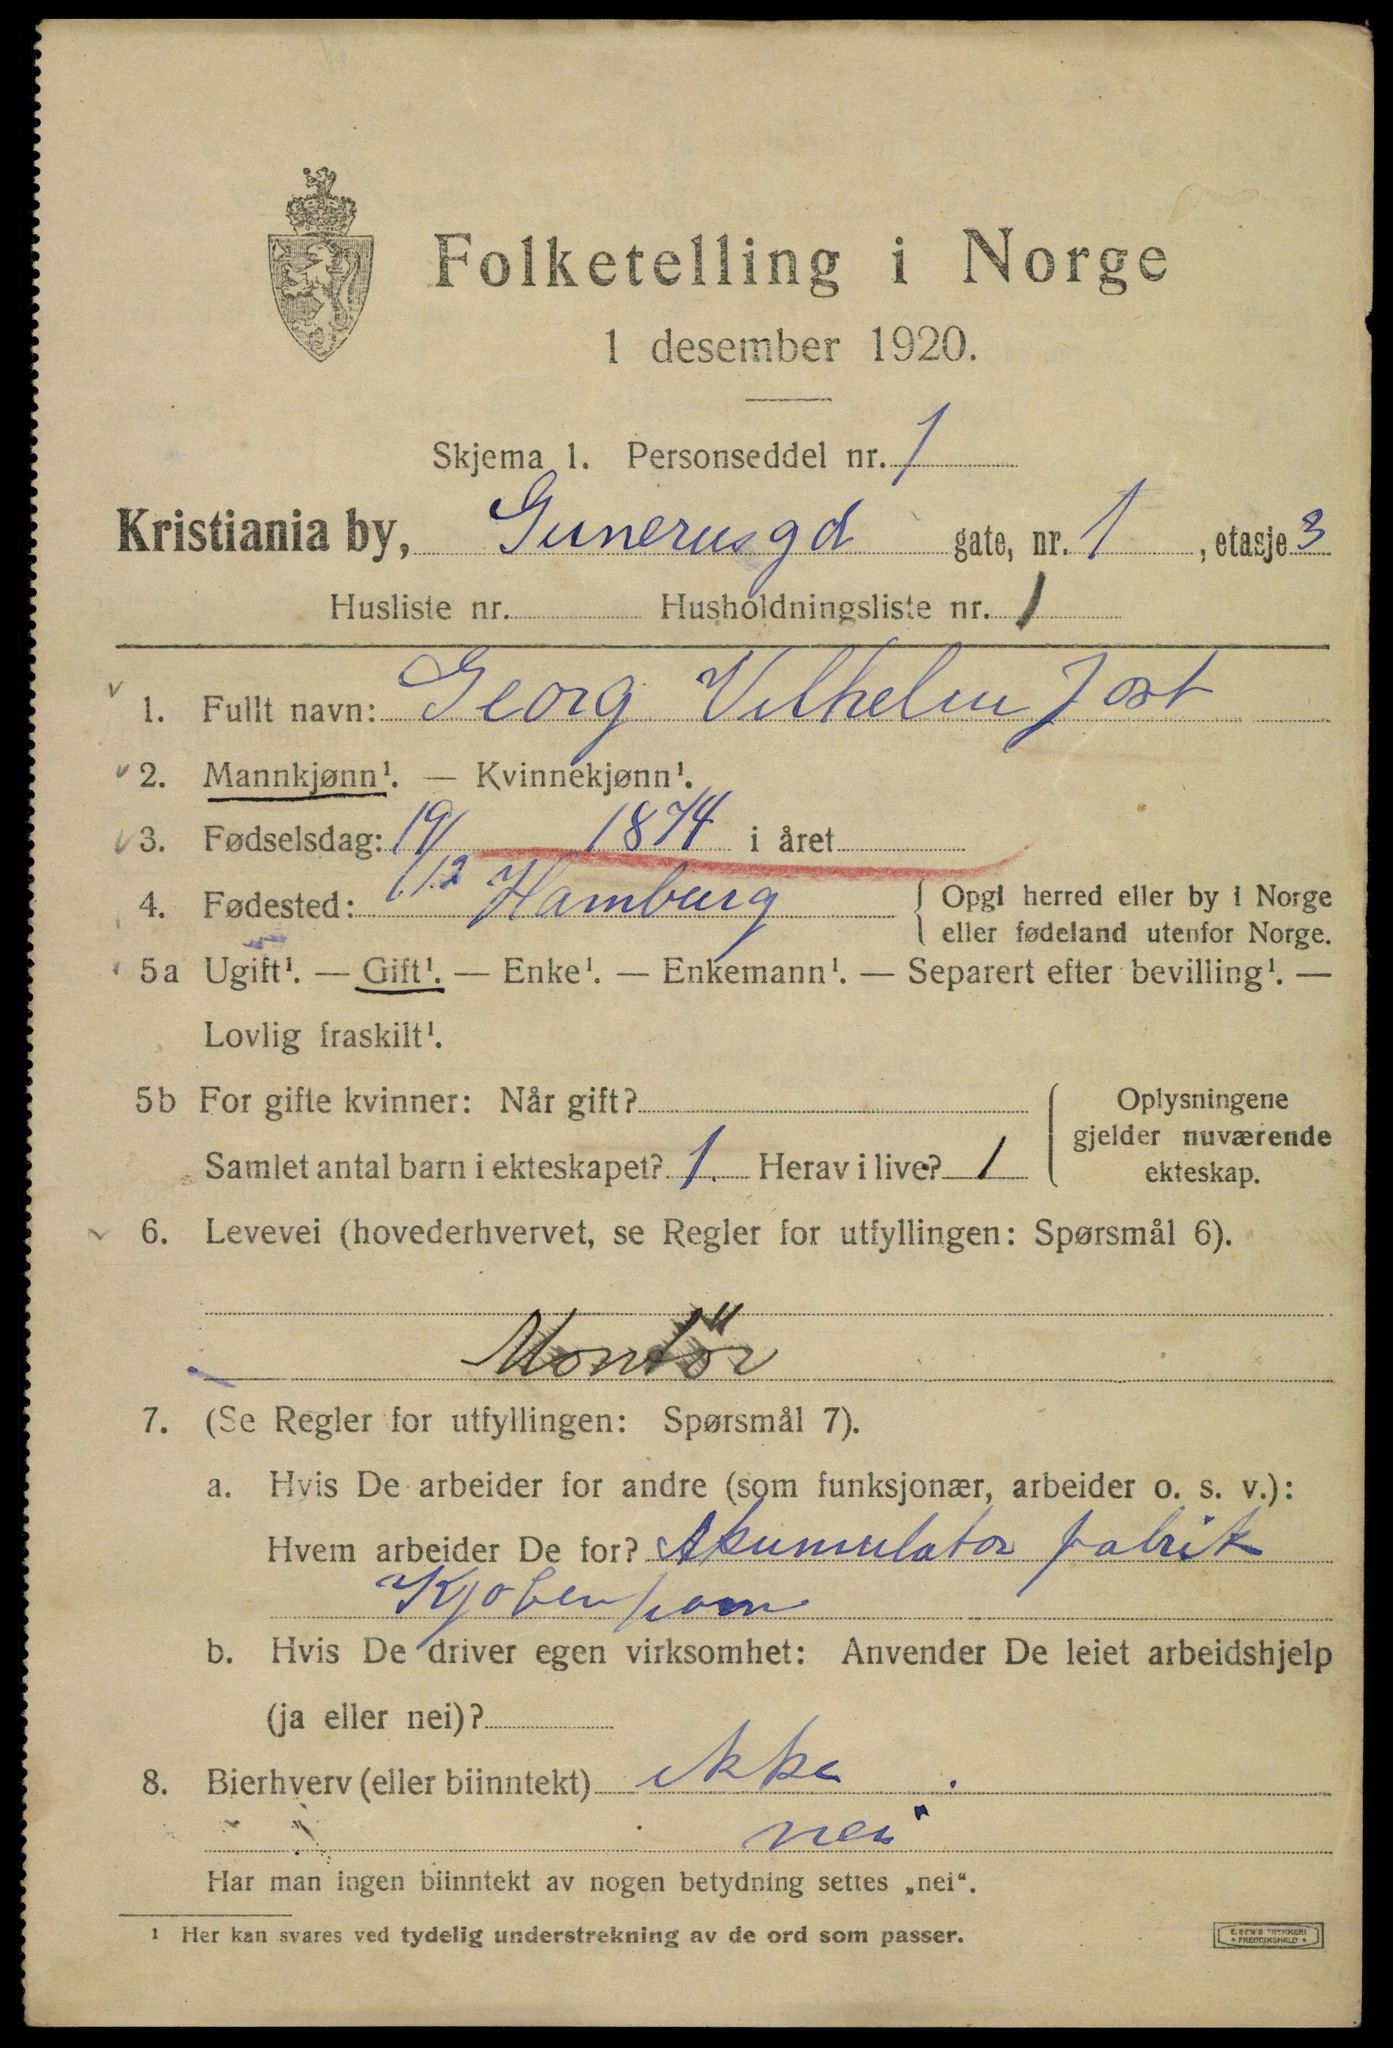 Folketelling i Norge
1 desember 1920.
Skjema 1. Personseddel nr. 1
Kristiania by, Gunerusgd gate, nr. 1, etasje 3
Husliste nr. Husholdningsliste nr. 1
1. Fullt navn: Georg Vilhelm Jost
2. Mannkjønn¹. — Kvinnekjønn¹.
3. Fødselsdag: 19/12 1874 i året
4. Fødested: Hamburg { Opgi herred eller by i Norge
eller fødeland utenfor Norge.
5a Ugift¹. — Gift¹. — Enke¹. — Enkemann¹. — Separert efter bevilling¹. —
Lovlig fraskilt¹.
5b For gifte kvinner: Når gift?
Samlet antal barn i ekteskapet? 1. Herav i live? 1
{ Oplysningene
gjelder nuværende
ekteskap.
6. Levevei (hovederhvervet, se Regler for utfyllingen: Spørsmål 6).
Montör
7. (Se Regler for utfyllingen: Spørsmål 7).
a. Hvis De arbeider for andre (som funksjonær, arbeider o. s. v.):
Hvem arbeider De for? Akumulator fabrik
Kjobenhavn
b. Hvis De driver egen virksomhet: Anvender De leiet arbeidshjelp
(ja eller nei)?
8. Bierhverv (eller biinntekt) ikke .
nei
Har man ingen biinntekt av nogen betydning settes „nei“.
¹ Her kan svares ved tydelig understrekning av de ord som passer.
FREDRIKSHALD